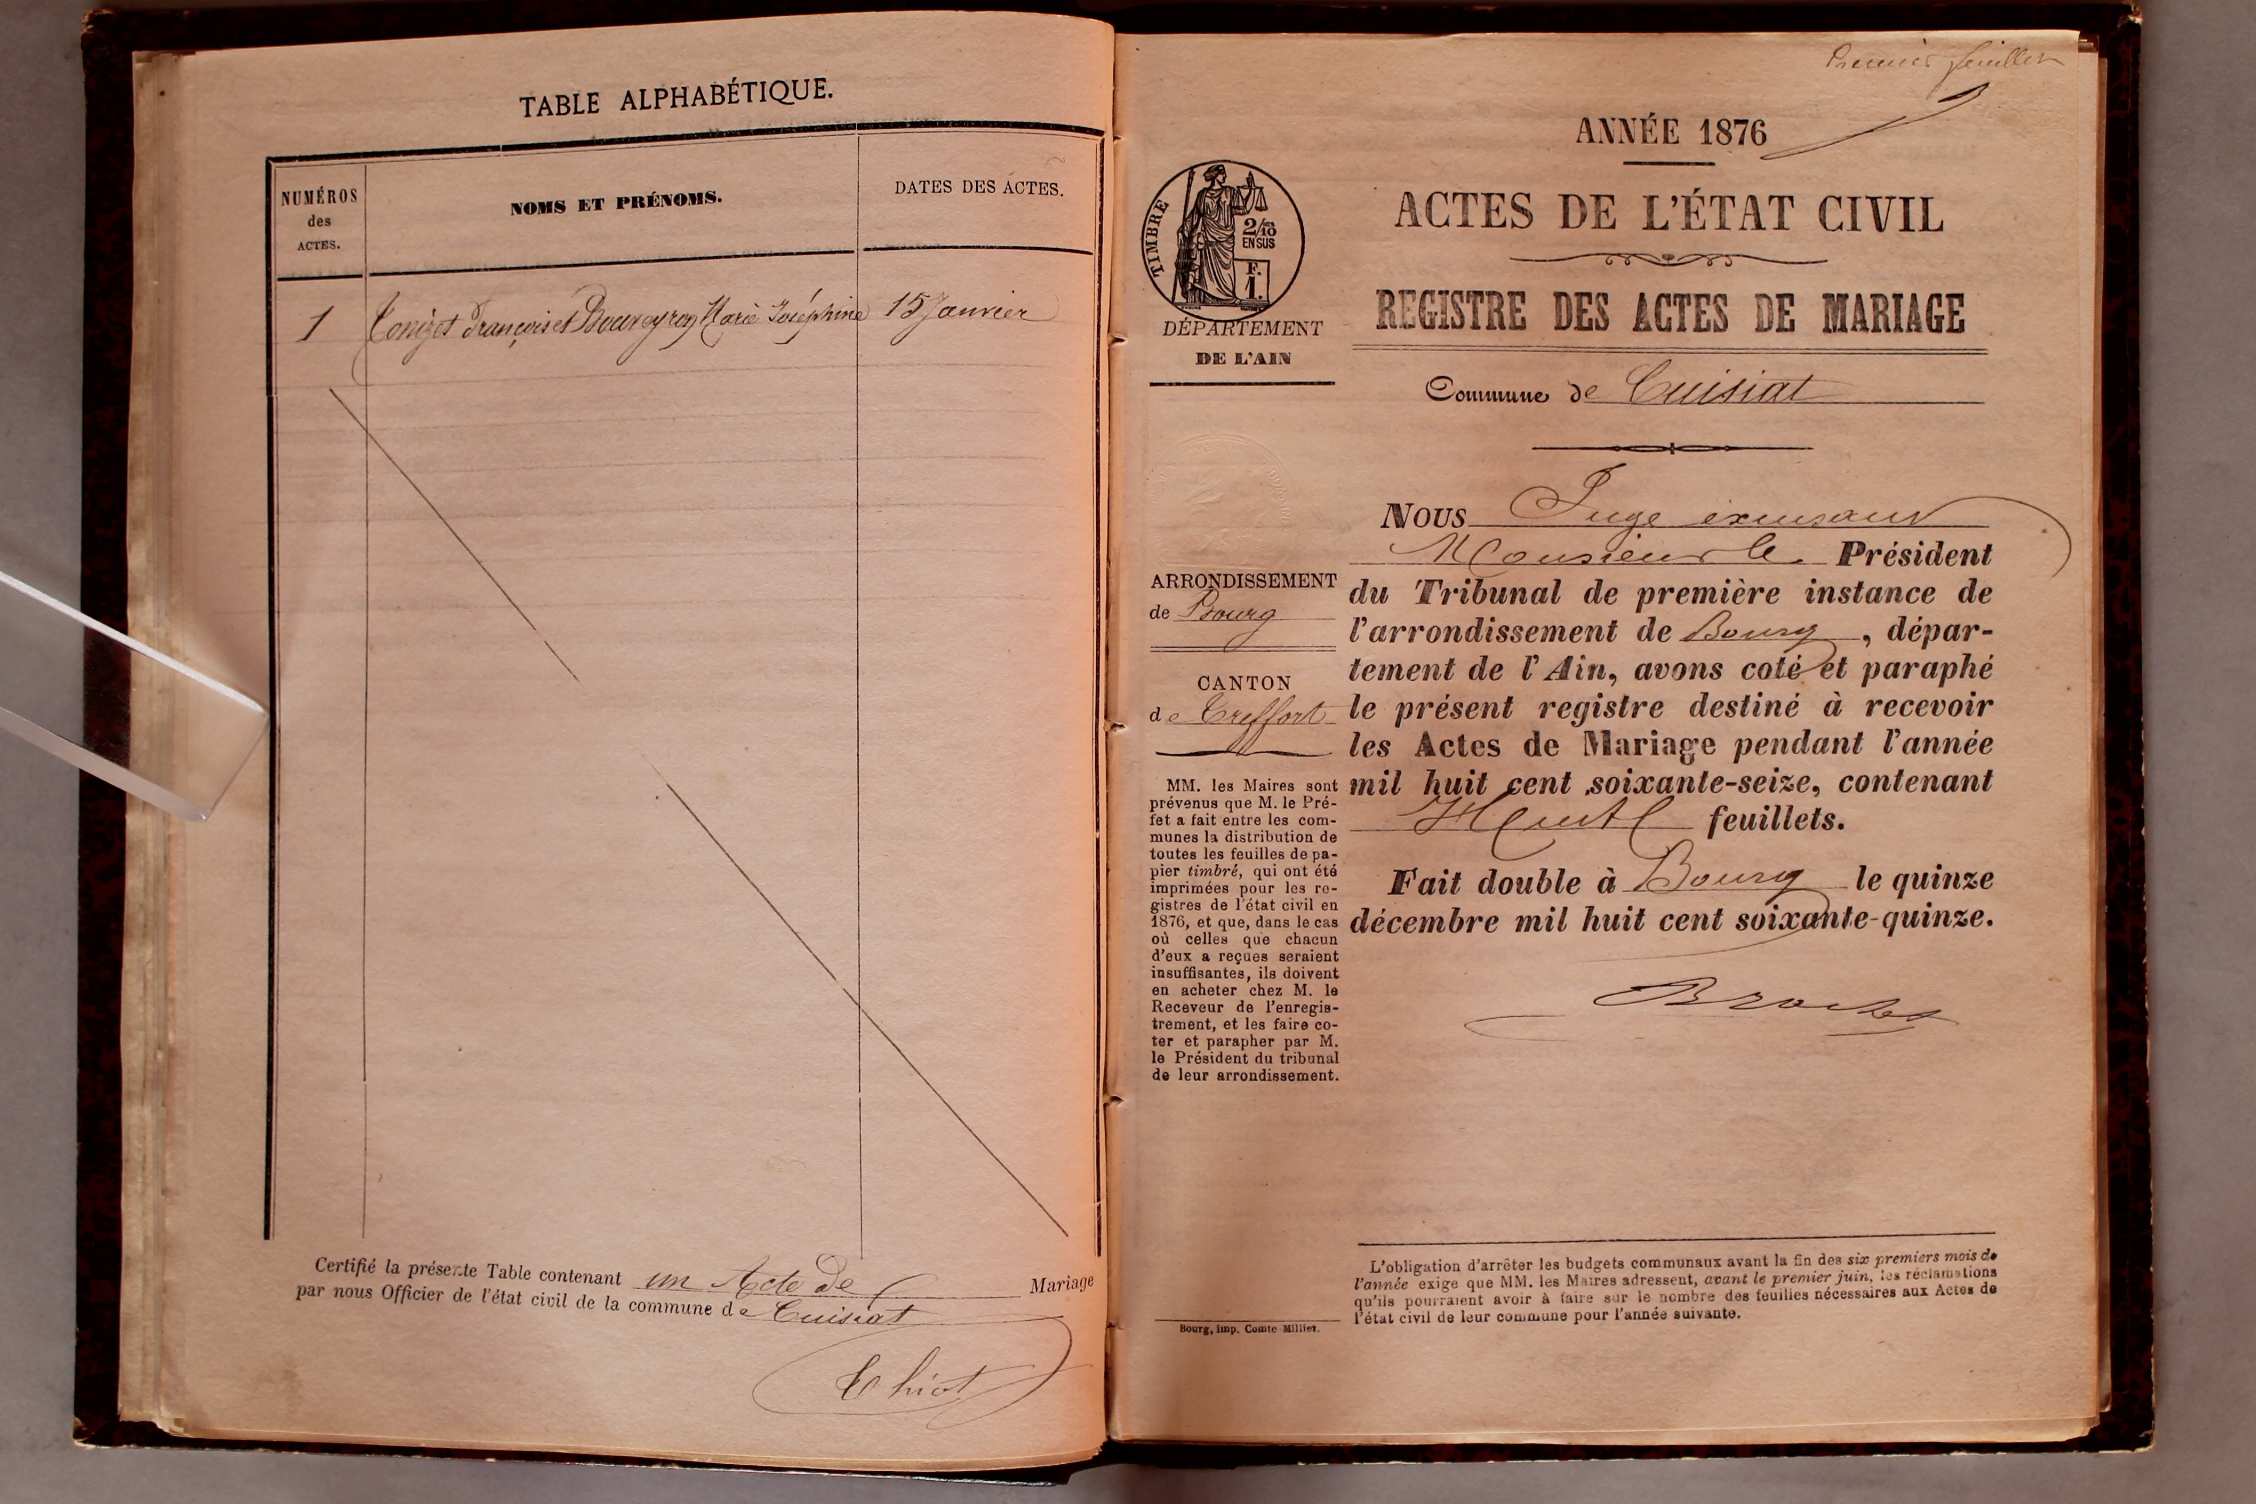 TABLE ALPHABÉTIQUE.
NUMÉROS
des
ACTES.
NOMS ET PRÉNOMS.
DATES DES ACTES.
1 François et Marie Joséphine 15 Janvier
Certifié la présente Table contenant un Acte de Mariage
par nous Officier de l'état civil de la commune de Cuisiat
Thiot
Premier feuillet
ANNÉE 1876
ACTES DE L'ÉTAT CIVIL
REGISTRE DES ACTES DE MARIAGE
Commune de Cuisiat
TIMBRE
2/10
EN SUS
F.
1.
DÉPARTEMENT
DE L'AIN
ARRONDISSEMENT
de Bourg
CANTON
de Treffort
MM. les Maires sont
prévenus que M. le Pré-
fet a fait entre les com-
munes la distribution de
toutes les feuilles de pa-
pier timbré, qui ont été
imprimées pour les re-
gistres de l'état civil en
1876, et que, dans le cas
où celles que chacun
d'eux a reçues seraient
insuffisantes, ils doivent
en acheter chez M. le
Receveur de l'enregis-
trement, et les faire co-
ter et parapher par M.
le Président du tribunal
de leur arrondissement.
Bourg, imp. Comte-Milliet.
NOUS Juge
Monsieur le Président
du Tribunal de première instance de
l'arrondissement de Bourg, dépar-
tement de l'Ain, avons coté et paraphé
le présent registre destiné à recevoir
les Actes de Mariage pendant l'année
mil huit cent soixante-seize, contenant
feuillets.
Fait double à Bourg le quinze
décembre mil huit cent soixante-quinze.
L'obligation d'arrêter les budgets communaux avant la fin des six premiers mois de
l'année exige que MM. les Maires adressent, avant le premier juin, les réclamations
qu'ils pourraient avoir à faire sur le nombre des feuilles nécessaires aux Actes de
l'état civil de leur commune pour l'année suivante.